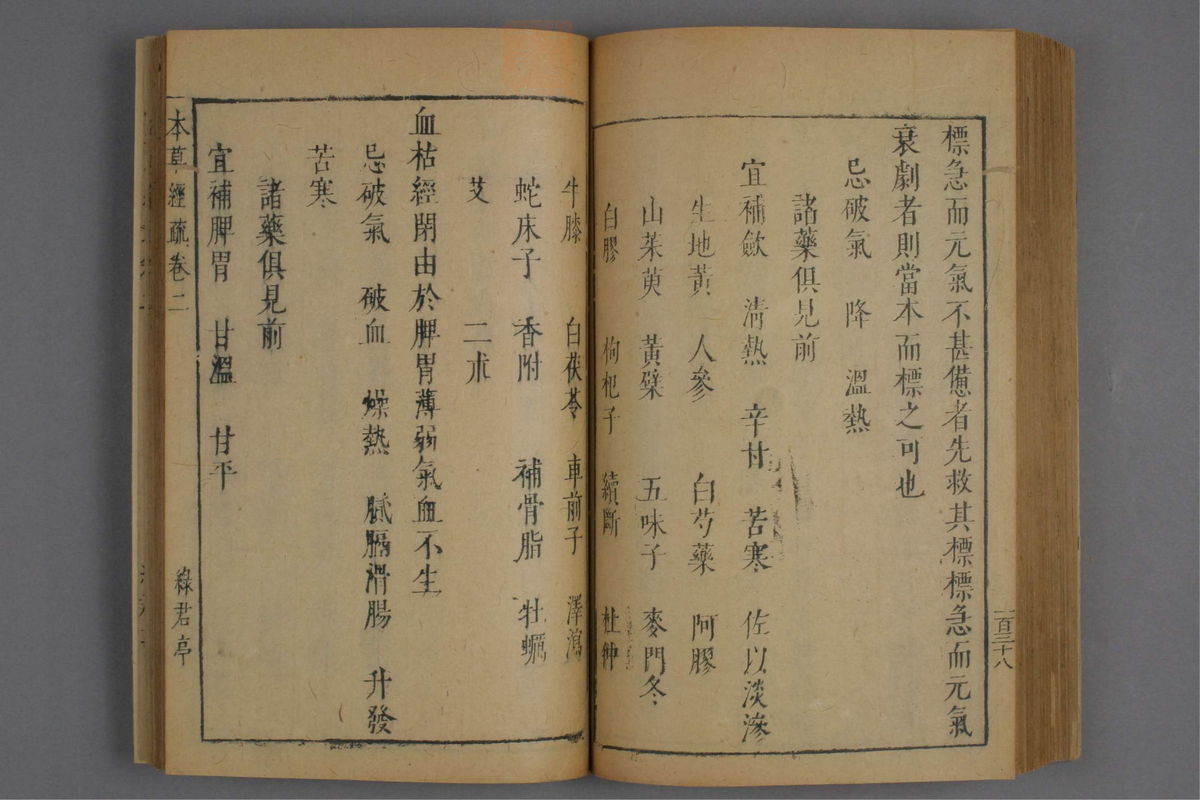 標急而元氣不甚憊者先救其標標急而元氣
衰劇者則當本而標之可也
忌破氣 降 溫熱
諸藥俱見前
宜補斂 清熱 辛甘 苦寒 佐以淡滲
生地黃 人參 白芍藥 阿膠
山茱萸 黃蘗 五味子 麥門冬
白膠 枸杞子 續斷 杜仲
一百三十八
牛膝 白茯苓 車前子 澤瀉
蛇床子 香附 補骨脂 牡蠣
艾 二朮
血枯經閉由於脾胃薄弱氣血不生
忌破氣 破血 燥熱 膩膈滑腸 升發
苦寒
諸藥俱見前
宜補脾胃 甘溫 甘平
本草經疏卷二 綠君亭